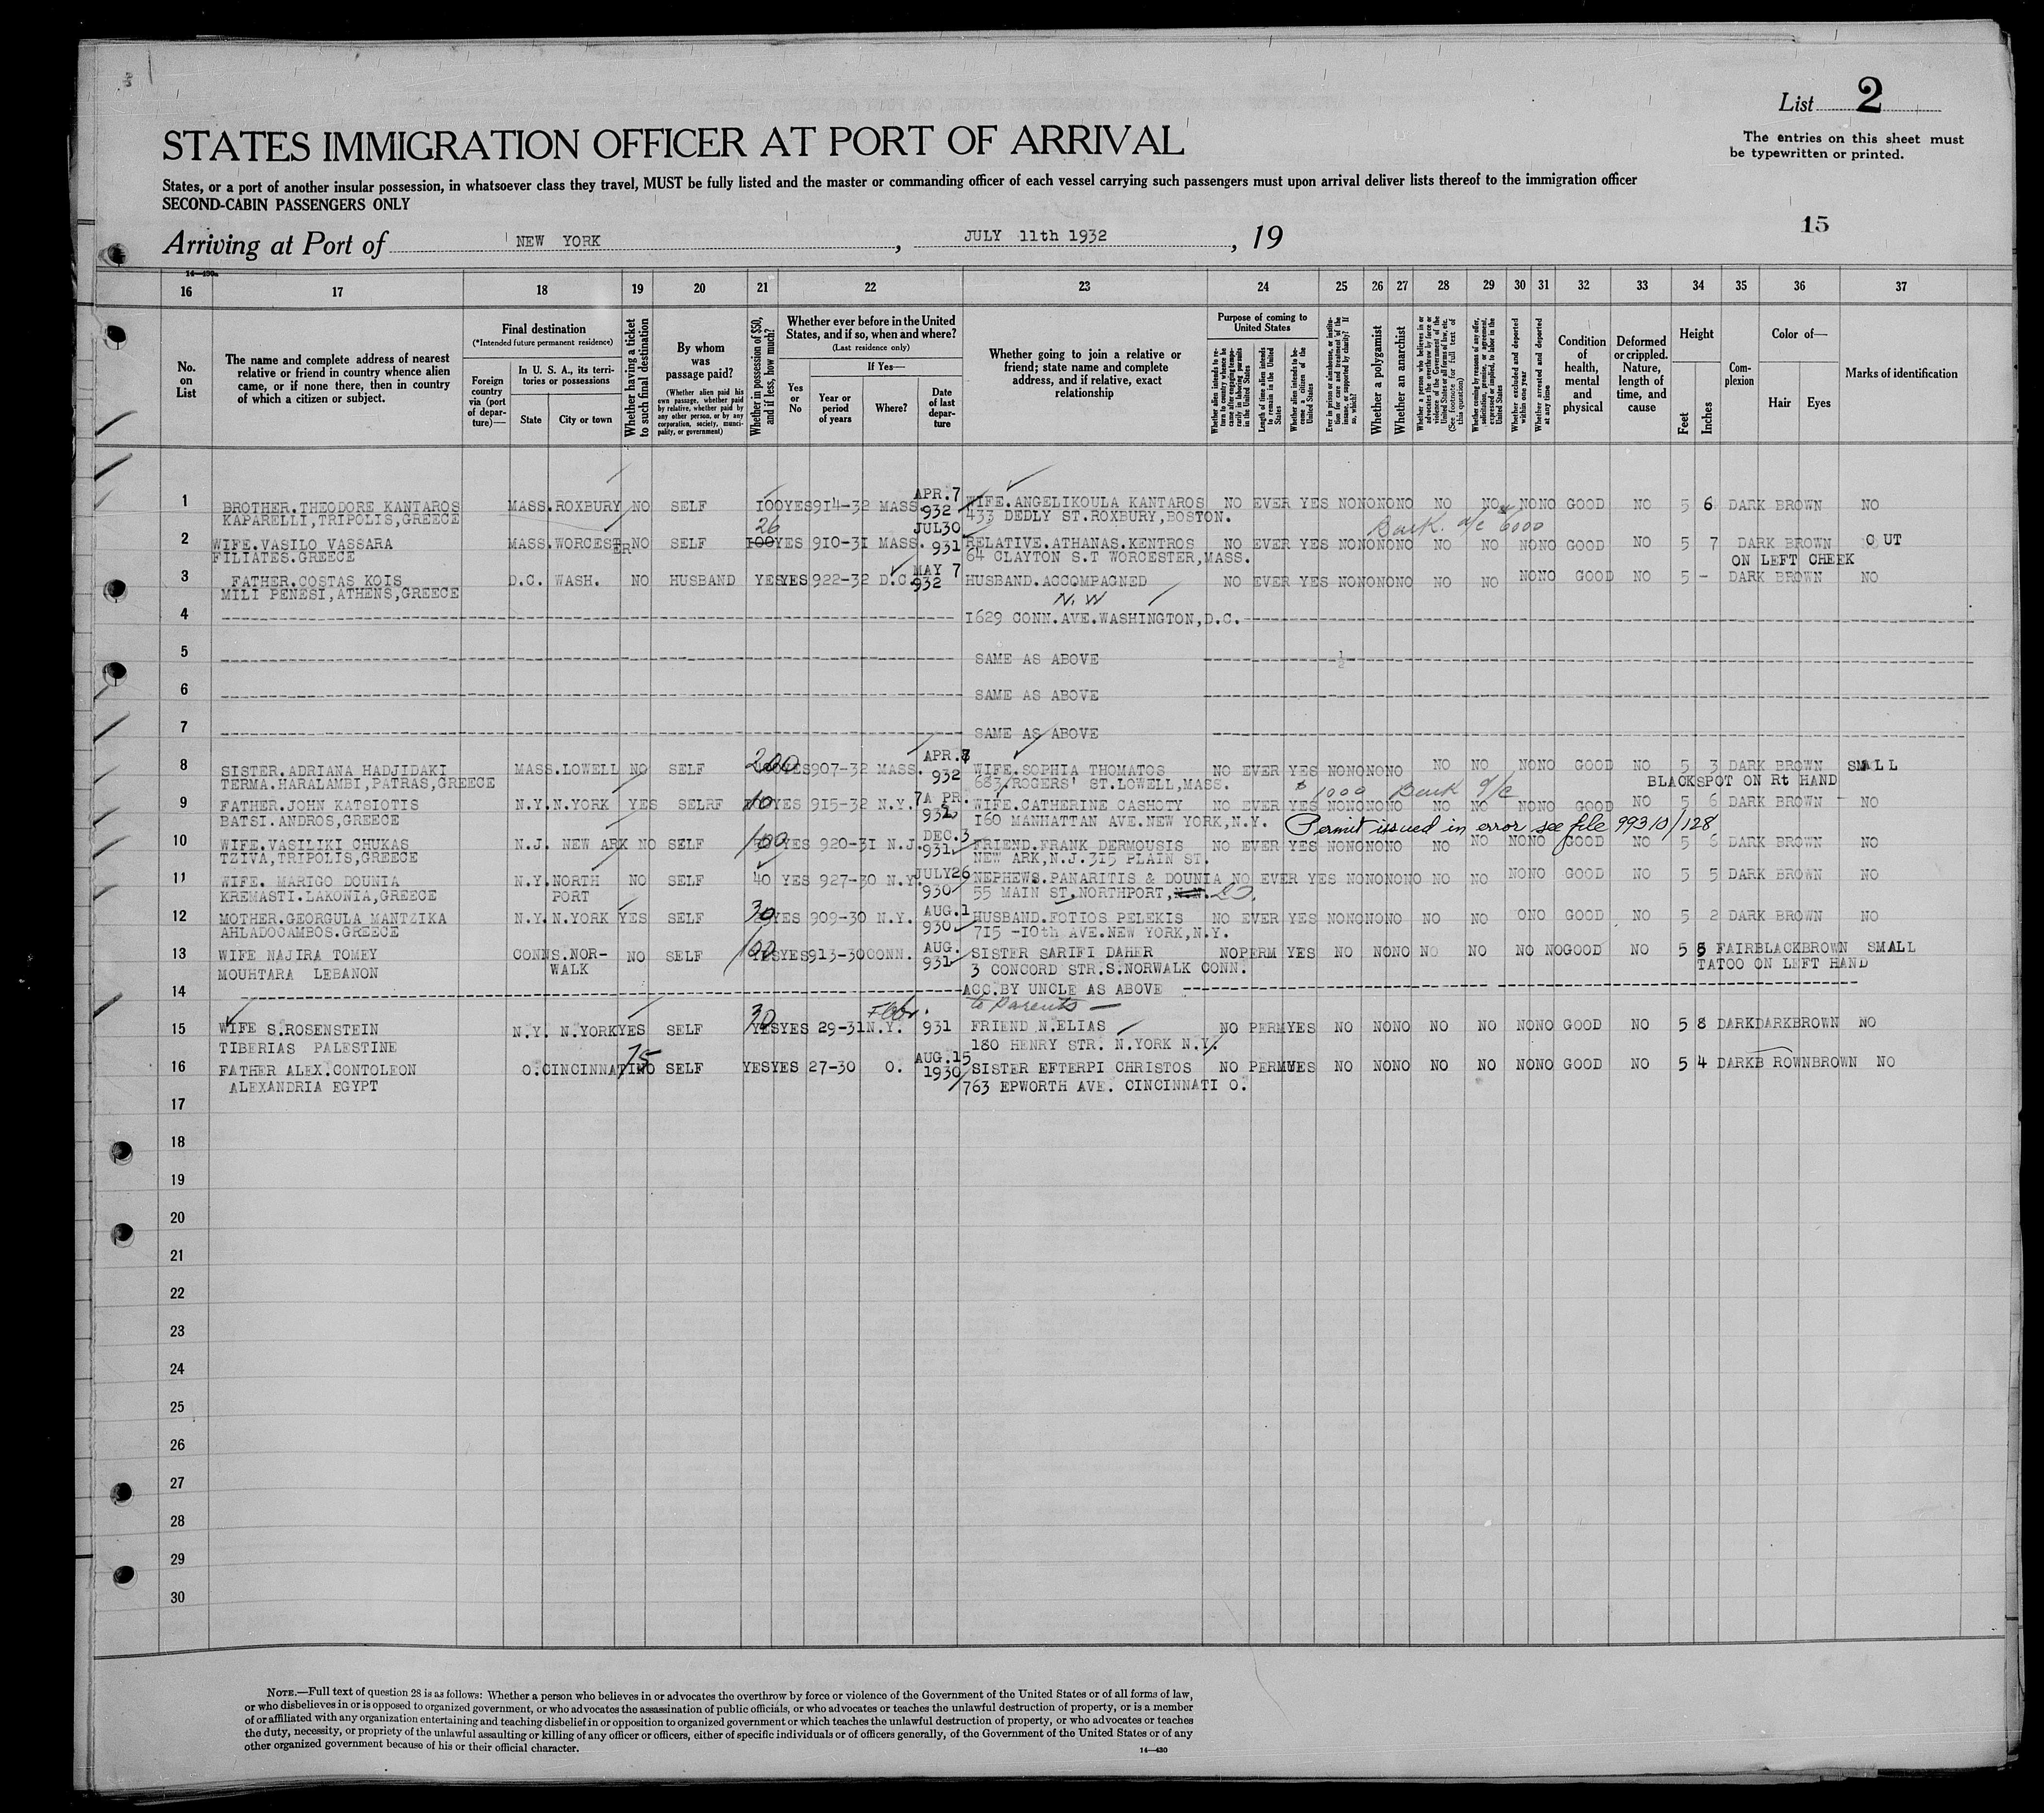 List 2
STATES IMMIGRATION OFFICER AT PORT OF ARRIVAL
The entries on this sheet must
be typewritten or printed.
States, or a port of another insular possession, in whatsoever class they travel, MUST be fully listed and the master or commanding officer of each vessel carrying such passengers must upon arrival deliver lists thereof to the immigration officer
SECOND-CABIN PASSENGERS ONLY
15
Arriving at Port of NEW YORK , JULY 11th 1932 , 19
14—430a
16 17 18 19 20 21 22 23 24 25 26 27 28 29 30 31 32 33 34 35 36 37
No. on List
The name and complete address of nearest relative or friend in country whence alien came, or if none there, then in country of which a citizen or subject.
Final destination
(*Intended future permanent residence)
Foreign country via (port of departure)—
In U. S. A., its territories or possessions
State
City or town
Whether having a ticket to such final destination
By whom was passage paid?
(Whether alien paid his own passage, whether paid by relative, whether paid by any other person, or by any corporation, society, municipality, or government)
Whether in possession of $50, and if less, how much?
Whether ever before in the United States, and if so, when and where?
(Last residence only)
Yes or No
If Yes—
Year or period of years
Where?
Date of last departure
Whether going to join a relative or friend; state name and complete address, and if relative, exact relationship
Purpose of coming to United States
Whether alien intends to return to country whence he came after engaging temporarily in laboring pursuits in the United States
Length of time alien intends to remain in the United States
Whether alien intends to become a citizen of the United States
Ever in prison or almshouse, or institution for care and treatment of the insane, or supported by charity? If so, which?
Whether a polygamist
Whether an anarchist
Whether a person who believes in or advocates the overthrow by force or violence of the Government of the United States or all forms of law, etc. (See footnote for full text of this question)
Whether coming by reasons of any offer, solicitation, promise, or agreement, expressed or implied, to labor in the United States
Whether excluded and deported within one year
Whether arrested and deported at any time
Condition of health, mental and physical
Deformed or crippled. Nature, length of time, and cause
Height
Feet
Inches
Complexion
Color of—
Hair
Eyes
Marks of identification
1 BROTHER.THEODORE KANTAROS MASS. ROXBURY NO SELF 100 YES 914-32 MASS. APR.7 932 WIFE.ANGELIKOULA KANTAROS NO EVER YES NO NO NO NO NO NO NO NO GOOD NO 5 6 DARK BROWN NO
KAPARELLI,TRIPOLIS,GREECE 433 DEDLY ST.ROXBURY,BOSTON.
26 Bank a/c 6000
2 WIFE.VASILO VASSARA MASS. WORCESTER NO SELF 100 YES 910-31 MASS. JUL30 931 RELATIVE.ATHANAS.KENTROS NO EVER YES NO NO NO NO NO NO NO NO GOOD NO 5 7 DARK BROWN CUT
FILIATES.GREECE 64 CLAYTON S.T WORCESTER,MASS. ON LEFT CHEEK
3 FATHER.COSTAS KOIS D.C. WASH. NO HUSBAND YES YES 922-32 D.C. MAY 7 932 HUSBAND.ACCOMPAGNED NO EVER YES NO NO NO NO NO NO NO NO GOOD NO 5 - DARK BROWN NO
MILI PENESI,ATHENS,GREECE N.W
4 1629 CONN.AVE.WASHINGTON,D.C.
5 SAME AS ABOVE
6 SAME AS ABOVE
7 SAME AS ABOVE
8 SISTER.ADRIANA HADJIDAKI MASS. LOWELL NO SELF 200 YES 907-32 MASS. APR.8 932 WIFE.SOPHIA THOMATOS NO EVER YES NO NO NO NO NO NO NO NO GOOD NO 5 3 DARK BROWN SMALL
TERMA.HARALAMBI,PATRAS,GREECE 683 ROGERS' ST.LOWELL,MASS. BLACKSPOT ON Rt HAND
$1000 Bank a/c
9 FATHER.JOHN KATSIOTIS N.Y. N.YORK YES SELRF 10 YES 915-32 N.Y. 7A PR. 932 WIFE.CATHERINE CASHOTY NO EVER YES NO NO NO NO NO NO NO NO GOOD NO 5 6 DARK BROWN NO
BATSI.ANDROS,GREECE 160 MANHATTAN AVE.NEW YORK,N.Y. Permit issued in error see file 99310/128
10 WIFE.VASILIKI CHUKAS N.J. NEW ARK NO SELF 100 YES 920-31 N.J. DEC.3 931 FRIEND.FRANK DERMOUSIS NO EVER YES NO NO NO NO NO NO NO NO GOOD NO 5 6 DARK BROWN NO
TZIVA,TRIPOLIS,GREECE NEW ARK,N.J.315 PLAIN ST.
11 WIFE. MARIGO DOUNIA N.Y. NORTH PORT NO SELF 40 YES 927-30 N.Y. JULY26 930 NEPHEWS.PANARITIS & DOUNIA NO EVER YES NO NO NO NO NO NO NO NO GOOD NO 5 5 DARK BROWN NO
KREMASTI.LAKONIA,GREECE 55 MAIN ST.NORTHPORT,
12 MOTHER.GEORGULA MANTZIKA N.Y. N.YORK YES SELF 30 YES 909-30 N.Y. AUG.1 930 HUSBAND.FOTIOS PELEKIS NO EVER YES NO NO NO NO NO NO ONO GOOD NO 5 2 DARK BROWN NO
AHLADOCAMBOS.GREECE 715 -10th AVE.NEW YORK,N.Y.
13 WIFE NAJIRA TOMEY CONN S.NORWALK NO SELF 100 YES 913-30 CONN. AUG. 931 SISTER SARIFI DAHER NO PERM YES NO NO NO NO NO NO NO GOOD NO 5 5 FAIR BLACK BROWN SMALL
MOUHTARA LEBANON 3 CONCORD STR.S.NORWALK CONN. TATOO ON LEFT HAND
14 ACC.BY UNCLE AS ABOVE
to Parents —
15 WIFE S.ROSENSTEIN N.Y. N.YORK YES SELF 30 YES YES 29-31 N.Y. 931 FRIEND N.ELIAS NO PERM YES NO NO NO NO NO NO NO GOOD NO 5 8 DARK DARK BROWN NO
TIBERIAS PALESTINE 180 HENRY STR. N.YORK N.Y.
75
16 FATHER ALEX.CONTOLEON O. CINCINNATI NO SELF YES YES 27-30 O. AUG.15 1930 SISTER EFTERPI CHRISTOS NO PERM YES NO NO NO NO NO NO NO GOOD NO 5 4 DARK BROWN BROWN NO
ALEXANDRIA EGYPT 763 EPWORTH AVE. CINCINNATI O.
17
18
19
20
21
22
23
24
25
26
27
28
29
30
NOTE.—Full text of question 28 is as follows: Whether a person who believes in or advocates the overthrow by force or violence of the Government of the United States or of all forms of law,
or who disbelieves in or is opposed to organized government, or who advocates the assassination of public officials, or who advocates or teaches the unlawful destruction of property, or is a member
of or affiliated with any organization entertaining and teaching disbelief in or opposition to organized government or which teaches the unlawful destruction of property, or who advocates or teaches
the duty, necessity, or propriety of the unlawful assaulting or killing of any officer or officers, either of specific individuals or of officers generally, of the Government of the United States or of any
other organized government because of his or their official character.
14—430